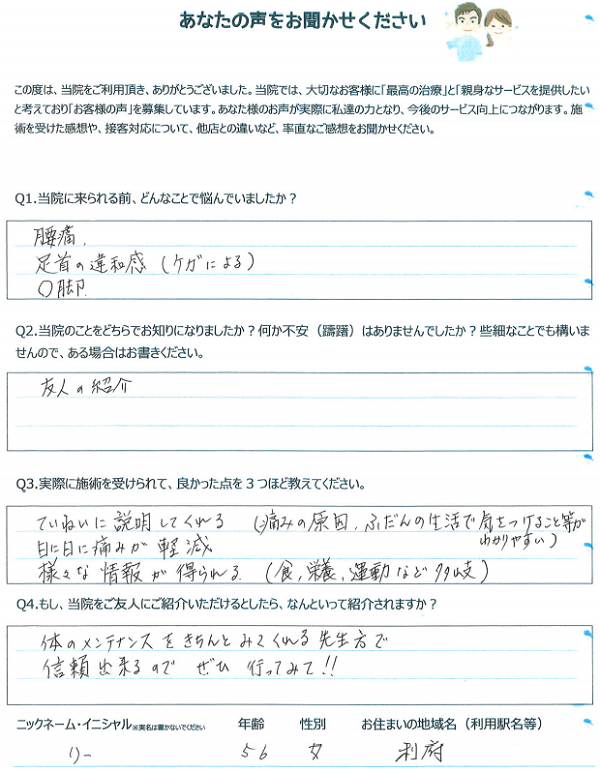 あなたの声をお聞かせください
この度は、当院をご利用頂き、ありがとうございました。当院では、大切なお客様に「最高の治療」と「親身なサービスを提供したい
と考えており「お客様の声」を募集しています。あなた様のお声が実際に私達の力となり、今後のサービス向上につながります。施
術を受けた感想や、接客対応について、他店との違いなど、率直なご感想をお聞かせください。
Q1.当院に来られる前、どんなことで悩んでいましたか？
腰痛、
足首の違和感（ケガによる）
O脚
Q2.当院のことをどちらでお知りになりましたか？何か不安（躊躇）はありませんでしたか？些細なことでも構いま
せんので、ある場合はお書きください。
友人の紹介
Q3.実際に施術を受けられて、良かった点を３つほど教えてください。
ていねいに説明してくれる（痛みの原因、ふだんの生活で気をつけること等が
わかりやすい）
日に日に痛みが軽減
様々な情報が得られる（食,栄養,運動など多岐）
Q4.もし、当院をご友人にご紹介いただけるとしたら、なんといって紹介されますか？
体のメンテナンスをきちんとみてくれる先生方で
信頼出来るので ぜひ 行ってみて!!
ニックネーム・イニシャル※実名は書かないでください 年齢 性別 お住まいの地域名（利用駅名等）
りー 56 女 利府